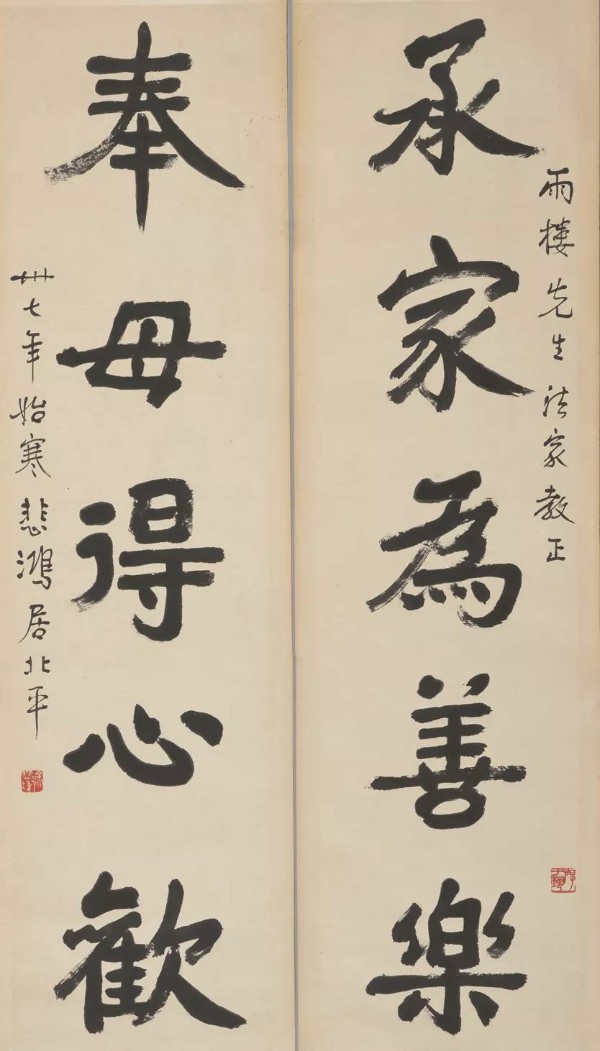 雨楼先生法家教正
承家為善樂
奉母得心歡
卅七年始寒悲鴻居北平